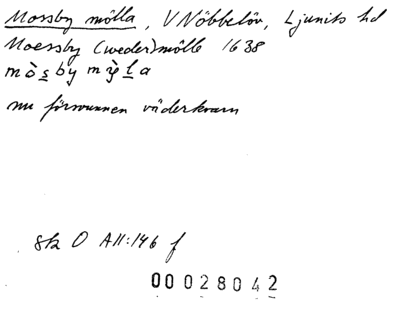 Mossby mölla, V Nöbbelöv, Ljunits hd
Moessby (weder)mölle 1638
mò̀s̲by mỳl̲a
nu försvunnen väderkvarn
Sk O AII:146 f
00028042